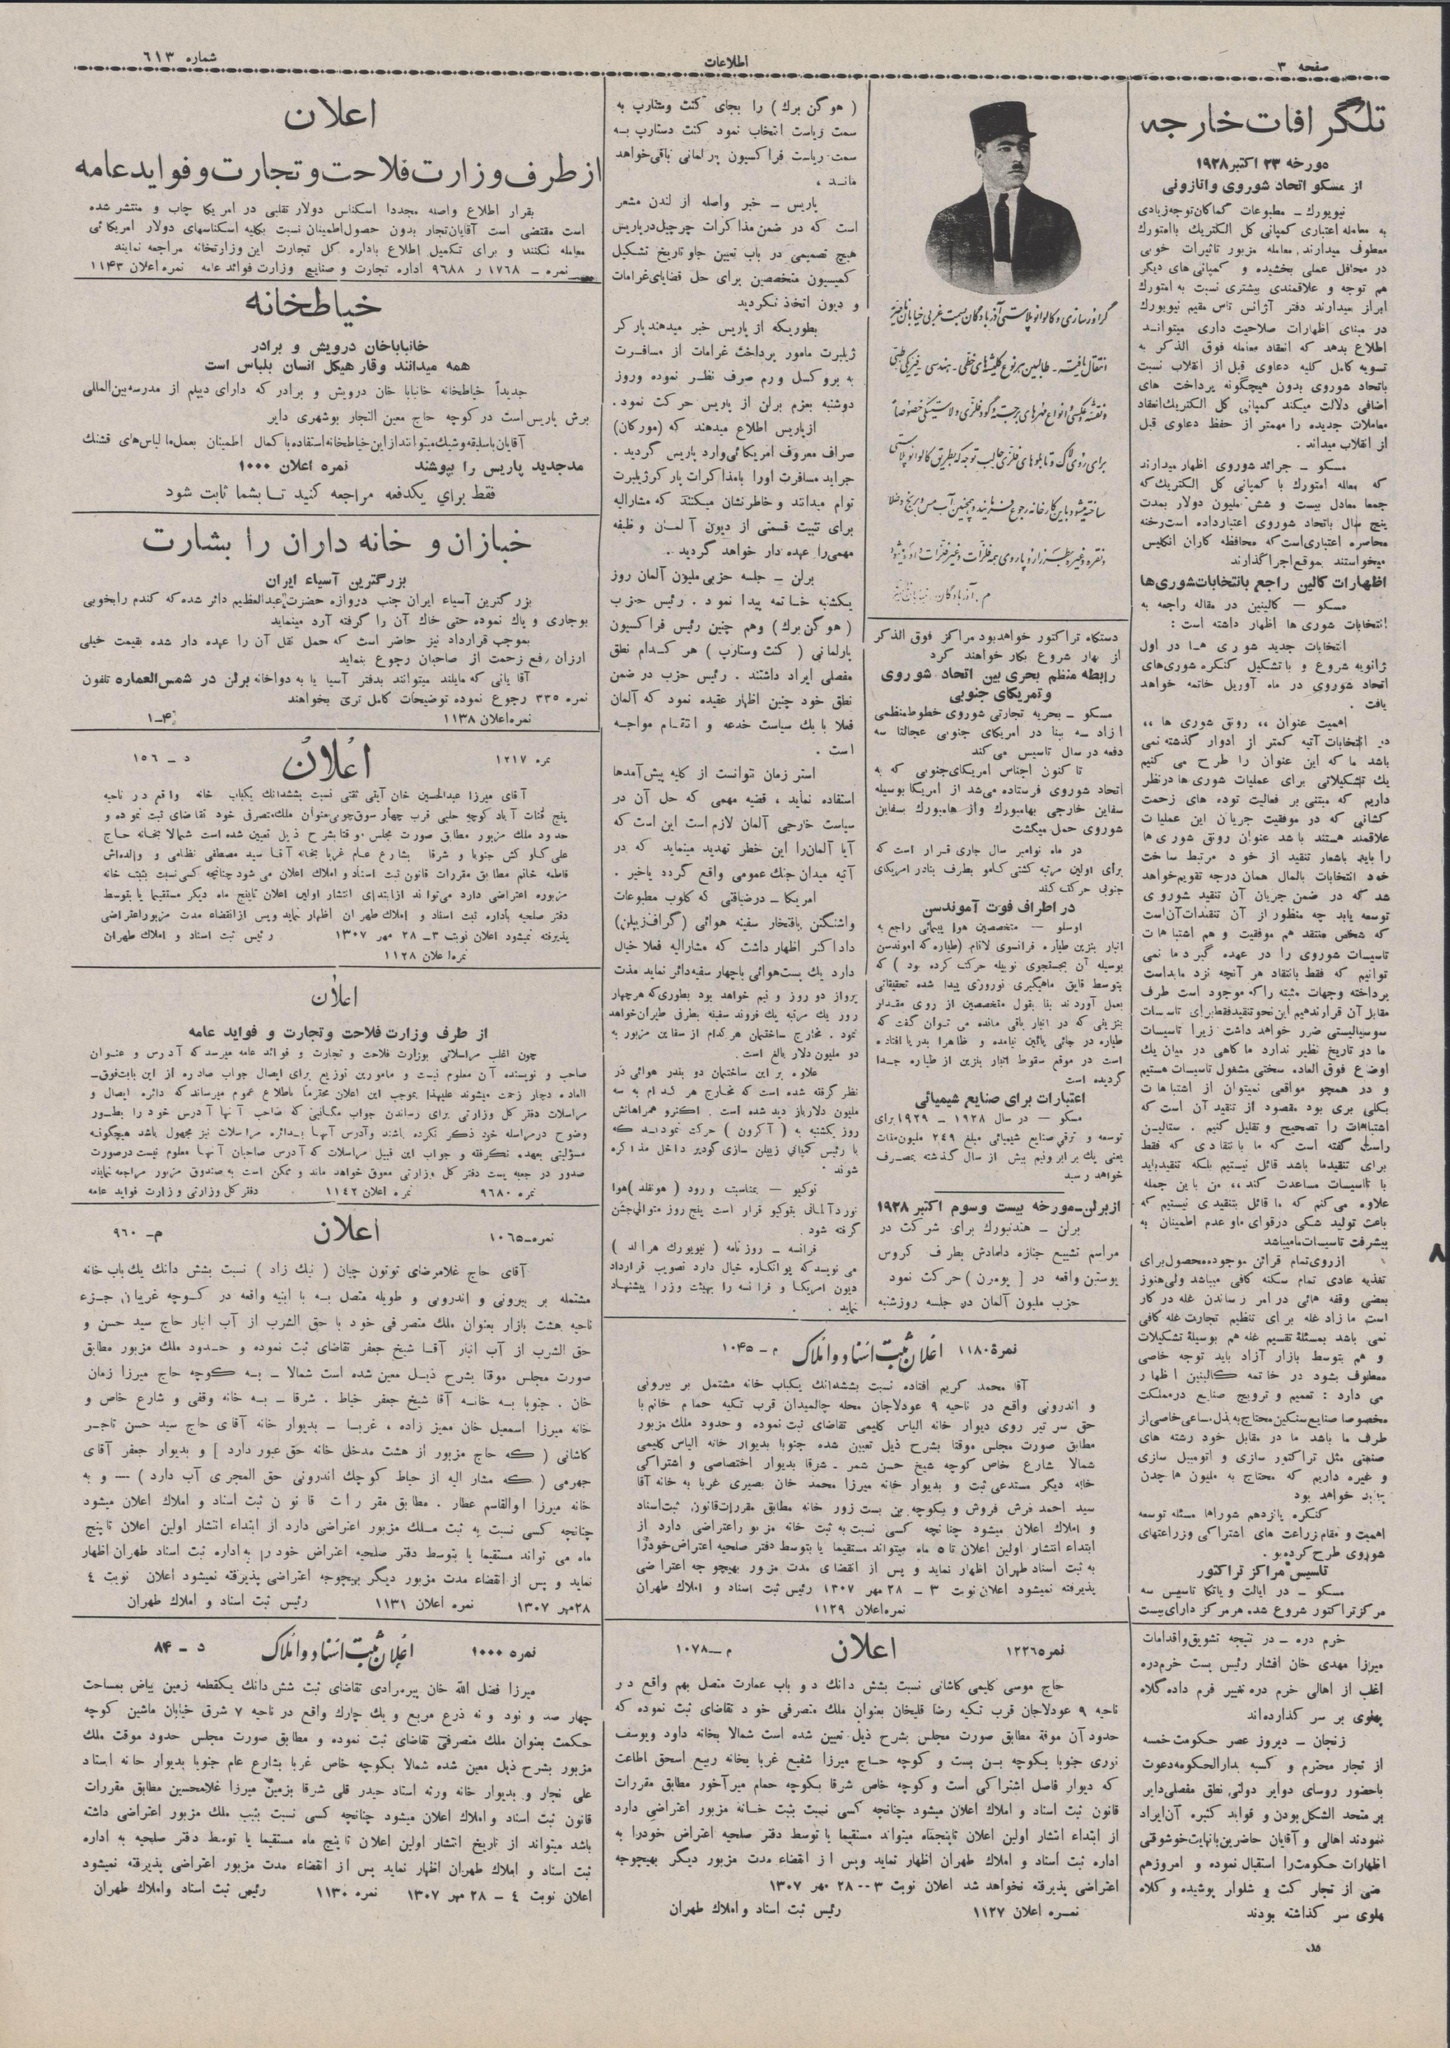 صفحه ۳
اطلاعات
شماره ۶۱۳
تلگرافات خارجه
مورخه ۲۳ اکتبر ۱۹۲۸
از مسکو اتحاد شوروی و اتازونی
نیویورك – مطبوعات کماکان توجه زیادی
به معامله اعتباری کمپانی کل الکتریك باامتورك
معطوف میدارند. معامله مزبور تاثیرات خوبی
در محافل عملی بخشیده و کمپانی های دیگر
هم توجه و علاقمندی بیشتری نسبت به امتورك
ابراز میدارند دفتر آژانس تاس مقیم نیویورك
در مبنای اظهارات صلاحیت داری میتواند
اطلاع بدهد که انعقاد معامله فوق الذکر به
تسویه کامل کلیه دعاوی قبل از انقلاب نسبت
باتحاد شوروی بدون هیچگونه پرداخت های
اضافی دلالت میکند کمپانی کل الکتریك انعقاد
معاملات جدیده را مهمتر از حفظ دعاوی قبل
از انقلاب میداند.
مسکو – جرائد شوروی اظهار میدارند
که معامله امتورك با کمپانی کل الکتریك که
جمعا معادل بیست و شش ملیون دولار بمدت
پنج سال باتحاد شوروی اعتبار داده است رخنه
محاصره اعتباری است که محافظه کاران انگلیس
میخواستند بموقع اجرا گذارند
اظهارات کالین راجع بانتخابات شوری ها
مسکو – کالینین در مقاله راجعه به
انتخابات شوری ها اظهار داشته است :
انتخابات جدید شوری ها در اول
ژانویه شروع و با تشکیل کنگره شوری های
اتحاد شوروی در ماه آوریل خاتمه خواهد
یافت .
اهمیت عنوان ،، رونق شوری ها ،،
در انتخابات آتیه کمتر از ادوار گذشته نمی
باشد ما که این عنوان را طرح می کنیم
یك تشکیلاتی برای عملیات شوری ها درنظر
داریم که مبتنی بر فعالیت توده های زحمت
کشانی که در موفقیت جریان این عملیات
علاقمند هستند با شد عنوان رونق شوری ها
را باید باشعار تنقید از خود مرتبط ساخت
خود انتخابات بالمال همان درجه تقویم خواهد
شد که در ضمن جریان آن تنقید شوروی
توسعه یابد چه منظور از آن تنقیدات آن است
که شخص منتقد هم موفقیت و هم اشتباهات
تاسیسات شوروی را در عهده گیرد ما نمی
توانیم که فقط بانتقاد هر آنچه نزد ما بد است
پرداخته وجهات مثبته را که موجود است طرف
مقابل آن قرار ندهیم این نحو تنقید فقط برای تاسیسات
سوسیالیستی ضرر خواهد داشت زیرا تاسیسات
ما در تاریخ نظیر ندارد ما گاهی در میان یك
اوضاع فوق العاده سختی مشغول تاسیسات هستیم
و در همچو مواقعی نمیتوان از اشتباهات
بکلی بری بود مقصود از تنقید آن است که
اشتباهات را تصحیح و تقلیل کنیم . ستالین
راست گفته است که ما با تنقادی که فقط
برای تنقید ما باشد قائل نیستیم بلکه تنقید باید
با تاسیسات مساعدت کند ،، من با این جمله
علاوه می کنم که ما قائل بتنقیدی نیستیم که
باعث تولید شکی در قوای ما و عدم اطمینان به
پیشرفت تاسیسات ما میباشد
از روی تمام قرائن موجوده محصول برای
تغذیه عادی تمام سکنه کافی میباشد ولی هنوز
بعضی وقفه هائی در امر رساندن غله در کار
است مازاد غله برای تنظیم تجارت غله کافی
نمی باشد بمسئلهٔ تقسیم غله هم بوسیلهٔ تشکیلات
و هم بتوسط بازار آزاد باید توجه خاصی
معطوف بشود در خاتمه کالینین اظهار
می دارد : تعمیم و ترویج صنایع در مملکت
مخصوصا صنایع سنگین محتاج به بذل مساعی خاصی از
طرف ما باشد ما در مقابل خود رشته های
صنعتی مثل تراکتور سازی و اتومبیل سازی
و غیره داریم که محتاج به ملیون ها چدن
خواهد بود
کنگره پانزدهم شوراها مسئله توسعه
اهمیت و مقام زراعت های اشتراکی وزراعتهای
شوروی طرح کرده بود.
تاسیس مراکز تراکتور
مسکو – در ایالت و یاتکا تاسیس سه
مرکز تراکتور شروع شده. هر مرکز دارای بیست
خرم دره – در نتیجه تشویق و اقدامات
میرزا مهدی خان افشار رئیس پست خرم دره
اغلب از اهالی خرم دره تغییر فرم داده کلاه
پهلوی بر سر گذارده اند
زنجان – دیروز عصر حکومت خمسه
از تجار محترم و کسبه بدارالحکومه دعوت
باحضور روسای دوایر دولتی نطق مفصلی دایر
بر متحد الشکل بودن و فواید کثیره آن ایراد
نمودند اهالی و آقایان حاضرین بانهایت خوشوقتی
اظهارات حکومت را استقبال نموده و امروز هم
منی از تجار کت و شلوار پوشیده و کلاه
پهلوی سر گذاشته بودند
گراور سازی و گالوانوپلاستی آذربادگان
انتقال یافته – طالبین هر نوع کلیشه های خطی – هندسی – فیزیکی طبی
و نقشه عکسی و انواع مهرهای برجسته و گود فلزی و لاستیکی خصوصاً
برای روی پلاک و تابلوهای فلزی جالب توجه که بطریق گالوانوپلاستی
ساخته میشود باین کارخانه رجوع فرمایند و همچنین آب مس و برنج و طلا
و نقره و غیره
م . آذربادگان
دستگاه تراکتور خواهد بود مراکز فوق الذکر
از بهار شروع بکار خواهند کرد
رابطه منظم بحری بین اتحاد شوروی
و تمریکای جنوبی
مسکو – بحریه تجارتی شوروی خطوط منظمی
آزاد به بنا در امریکای جنوبی عجالتا سه
دفعه در سال تاسیس می کند
تا کنون اجناس امریکای جنوبی که به
اتحاد شوروی فرستاده می شد از امریکا بوسیله
سفاین خارجی بهامبورك واز هامبورك بسفاین
شوروی حمل میگشت
در ماه نوامبر سال جاری قرار است که
برای اولین مرتبه کشتی کامو بطرف بنادر امریکای
جنوبی حرکت کند
در اطراف فوت آموندسن
اوسلو – متخصصین هوا پیمائی راجع به
انبار بنزین طیاره فرانسوی لاتام. (طیاره که اموندسن
بوسیله آن بجستجوی نوبیله حرکت کرده بود ) که
بتوسط قایق ماهیگیری نوروزی پیدا شده تحقیقاتی
بعمل آوردند بنا بقول متخصصین از روی مقدار
بنزینی که در انبار باقی مانده می توان گفت که
طیاره در جائی پائین نیامده و ظاهرا بدریا افتاده
است در موقع سقوط انبار بنزین از طیاره جدا
گردیده است
اعتبارات برای صنایع شیمیائی
مسکو – در سال ۱۹۲۸ – ۱۹۲۹ برای
توسعه و ترقی صنایع شیمیائی مبلغ ۲۴۹ ملیون منات
یعنی یك برابر و نیم بیش از سال گذشته بمصرف
خواهد رسید
از برلن – مورخه بیست و سوم اکتبر ۱۹۲۸
برلن – هندنبورك برای شرکت در
مراسم تشییع جنازه دامادش بطرف کروس
یوستین واقعه در [ پومرن ) حرکت نمود
حزب ملیون آلمان در جلسه روز شنبه
( هوگن برك ) را بجای کنت وستارپ به
سمت ریاست انتخاب نمود کنت وستارپ به
سمت ریاست فراکسیون پارلمانی باقی خواهد
ماند .
پاریس – خبر واصله از لندن مشعر
است که در ضمن مذاکرات چرچیل در پاریس
هیچ تصمیمی در باب تعیین جا و تاریخ تشکیل
کمیسیون متخصصین برای حل قضایای غرامات
و دیون اتخذ نگردید
بطوریکه از پاریس خبر میدهند پارکر
ژیلبرت مامور پرداخت غرامات از مسافرت
به بروکسل و رم صرف نظر نموده و روز
دوشنبه بعزم برلن از پاریس حرکت نمود.
از پاریس اطلاع میدهند که (مورگان)
صراف معروف امریکائی وارد پاریس گردید .
جراید مسافرت اورا بامذاکرات پارکر ژیلبرت
توام میدانند و خاطر نشان میکنند که مشارالیه
برای تثبیت قسمتی از دیون آلمان وظیفه
مهمی را عهده دار خواهد گردید ..
برلن – جلسه حزبی ملیون آلمان روز
یکشنبه خاتمه پیدا نمود . رئیس حزب
( هوگن برك ) وهم چنین رئیس فراکسیون
پارلمانی ( کنت وستارپ ) هر کدام نطق
مفصلی ایراد داشتند . رئیس حزب در ضمن
نطق خود چنین اظهار عقیده نمود که آلمان
فعلا با یك سیاست خدعه و انتقام مواجه
است .
استر زمان نتوانست از کلیه پیش آمدها
استفاده نماید ، قضیه مهمی که حل آن در
سیاست خارجی آلمان لازم است این است که
آیا آلمان را این خطر تهدید مینماید که در
آتیه میدان جنك عمومی واقع گردد یا خیر .
امریکا – در ضیافتی که کلوب مطبوعات
واشنگتن بافتخار سفینه هوائی (گراف زپلن)
داد اکنر اظهار داشت که مشارالیه فعلا خیال
دارد یك پست هوائی باچهار سفینه دائر نماید مدت
پرواز دو روز و نیم خواهد بود بطوری که هر چهار
روز یك مرتبه یك فروند سفینه بطرفی طیران خواهد
نمود . مخارج ساختمان هر کدام از سفاین مزبور به
دو ملیون دلار بالغ است .
علاوه بر این ساختمان دو بندر هوائی در
نظر گرفته شده است که مخارج هر کدام به سه
ملیون دلار باز دید شده است . اکنر و همراهانش
روز یکشنبه به ( آکرون ) حرکت نمودند که
با رئیس کمپانی زپیلن سازی گودیر داخل مذاکره
شوند .
توکیو – بمناسبت ورود ( هونفلد ) هوا
نورد آلمانی بتوکیو قرار است پنج روز متوالی جشن
گرفته شود .
فرانسه – روزنامه ( نیویورك هرالد )
می نویسد که پوانکاره خیال دارد تصویب قرارداد
دیون امریکا و فرانسه را بهیئت وزرا پیشنهاد
نماید .
نمره ۱۱۸۰ اعلان ثبت اسناد و املاک م – ۱۰۴۵
آقا محمد کریم افتاده نسبت بششدانك یکباب خانه مشتمل بر بیرونی
و اندرونی واقع در ناحیه ۹ عودلاجان محله چالمیدان قرب تکیه حمام خانم با
حق سر تیر روی دیوار خانه الیاس کلیمی تقاضای ثبت نموده و حدود ملك مزبور
مطابق صورت مجلس موقتا بشرح ذیل تعیین شده جنوبا بدیوار خانه الیاس کلیمی
شمالا شارع خاص کوچه شیخ حسن شمر . شرقا بدیوار اختصاصی و اشتراکی
خانه دیگر مستدعی ثبت و بدیوار خانه میرزا محمد خان بصیری غربا به خانه آقا
سید احمد فرش فروش و بکوچه بن بست زور خانه مطابق مقررات قانون ثبت اسناد
و املاك اعلان میشود چنانچه کسی نسبت به ثبت خانه مزبور اعتراضی دارد از
ابتداء انتشار اولین اعلان تا ۵ ماه میتواند مستقیما یا بتوسط دفتر صلحیه اعتراض خودرا
به ثبت اسناد طهران اظهار نماید و پس از انقضای مدت مزبور بهیچوجه اعتراضی
پذیرفته نمیشود اعلان نوبت ۳ – ۲۸ مهر ۱۳۰۷ رئیس ثبت اسناد و املاك طهران
نمره اعلان ۱۱۲۹
نمره ۱۲۲۶ اعلان م – ۱۰۷۸
حاج موسی کلیمی کاشانی نسبت بشش دانك دو باب عمارت متصل بهم واقع در
ناحیه ۹ عودلاجان قرب تکیه رضا قلیخان بعنوان ملك متصرفی خود تقاضای ثبت نموده که
حدود آن موقة مطابق صورت مجلس بشرح ذیل تعیین شده است شمالا بخانه داود ویوسف
نوری جنوبا بکوچه بن بست و کوچه حاج میرزا شفیع غربا بخانه ربیع اسحق اطاعت
که دیوار فاصل اشتراکی است و کوچه خاص شرقا بکوچه حمام میر آخور مطابق مقررات
قانون ثبت اسناد و املاك اعلان میشود چنانچه کسی نسبت بثبت خانه مزبور اعتراضی دارد
از ابتداء انتشار اولین اعلان تا پنجماه میتواند مستقیما یا توسط دفتر صلحیه اعتراض خودرا به
اداره ثبت اسناد و املاك طهران اظهار نماید وپس از انقضاء مدت مزبور دیگر بهیچوجه
اعتراضی پذیرفته نخواهد شد اعلان نوبت ۳ – ۲۸ مهر ۱۳۰۷
نمره اعلان ۱۱۲۷ رئیس ثبت اسناد و املاك طهران
اعلان
از طرف وزارت فلاحت و تجارت و فواید عامه
بقرار اطلاع واصله مجددا اسکناس دولار تقلبی در امریکا چاپ و منتشر شده
است مقتضی است آقایان تجار بدون حصول اطمینان نسبت بکلیه اسکناسهای دولار امریکائی
معامله نکنند و برای تکمیل اطلاع باداره کل تجارت این وزارتخانه مراجعه نمایند
نمره – ۱۷۶۸ ر ۹۶۸۸ اداره تجارت و صنایع وزارت فوائد عامه نمره اعلان ۱۱۴۳
خیاطخانه
خانباباخان درویش و برادر
همه میدانند وقار هیکل انسان بلباس است
جدیداً خیاطخانه خانبابا خان درویش و برادر که دارای دیپلم از مدرسه بین المللی
برش پاریس است در کوچه حاج معین التجار بوشهری دایر
آقایان باسلیقه و شیك میتوانند از این خیاطخانه استفاده با کمال اطمینان بعمل ما لباس های قشنك
مد جدید پاریس را بپوشند نمره اعلان ۱۰۰۰
فقط برای یکدفعه مراجعه کنید تا بشما ثابت شود
خبازان و خانه داران را بشارت
بزرگترین آسیاء ایران
بزرگترین آسیاء ایران جنب دروازه حضرت عبدالعظیم دائر شده که گندم را بخوبی
بوجاری و پاك نموده حتی خاك آن را گرفته آرد مینماید
بموجب قرارداد نیز حاضر است که حمل نقل آن را عهده دار شده بقیمت خیلی
ارزان رفع زحمت از صاحبان رجوع بنماید
آقایانی که مایلند میتوانند بدفتر آسیا یا به دواخانه برلن در شمس العماره تلفون
نمره ۳۳۵ رجوع نموده توضیحات کامل تری بخواهند
نمره اعلان ۱۱۳۸ ۴–۱
نمره ۱۲۱۷ اعلان د – ۱۵۶
آقای میرزا عبدالحسین خان آیقی ثقتی نسبت بششدانك یکباب خانه واقع در ناحیه
پنج قنات آباد کوچه حلبی قرب چهار سوق چوبی بعنوان ملك متصرفی خود تقاضای ثبت نموده و
حدود ملك مزبور مطابق صورت مجلس موقتا بشرح ذیل تعیین شده است شمالا بخانه حاج
علی گاو کش جنوبا و شرقا بشارع عام غربا بخانه آقا سید مصطفی نظامی و والده اش
فاطمه خانم مطابق مقررات قانون ثبت اسناد و املاك اعلان می شود چنانچه کسی نسبت بثبت خانه
مزبوره اعتراضی دارد می تواند از ابتدای انتشار اولین اعلان تا پنج ماه دیگر مستقیما یا بتوسط
دفتر صلحیه باداره ثبت اسناد و املاك طهران اظهار نماید وپس از انقضاء مدت مزبور اعتراضی
پذیرفته نمیشود اعلان نوبت ۳ – ۲۸ مهر ۱۳۰۷ رئیس ثبت اسناد و املاك طهران
نمره اعلان ۱۱۲۸
اعلان
از طرف وزارت فلاحت و تجارت و فواید عامه
چون اغلب مراسلاتی بوزارت فلاحت و تجارت و فوائد عامه میرسد که آدرس و عنوان
صاحب و نویسنده آن معلوم نیست و مامورین توزیع برای ایصال جواب صادره از این بابت فوق –
العاده دچار زحمت میشوند علیهذا بموجب این اعلان محترماً باطلاع عموم میرساند که دائره ایصال و
مراسلات دفتر کل وزارتی برای رساندن جواب مکاتیبی که صاحب آنها آدرس خود را بطور
وضوح در مراسله خود ذکر نکرده باشند و آدرس آنها بدائره مراسلات نیز مجهول باشد هیچگونه
مسؤلیتی بعهده نگرفته و جواب این قبیل مراسلات که آدرس صاحبان آنها معلوم نیست درصورت
صدور در جعبه پست دفتر کل وزارتی معوق خواهد ماند و ممکن است به صندوق مزبور مراجعه نمایند
نمره ۹۶۸۰ نمره اعلان ۱۱۴۲ دفتر کل وزارتی وزارت فواید عامه
نمره – ۱۰۶۵ اعلان م – ۹۶۰
آقای حاج غلامرضای توتون چیان ( نیك زاد ) نسبت بشش دانك یك باب خانه
مشتمله بر بیرونی و اندرونی و طویله متصل به با ابنیه واقعه در کوچه غریبان جزء
ناحیه هشت بازار بعنوان ملك متصرفی خود با حق الشرب از آب انبار حاج سید حسن و
حق الشرب از آب انبار آقا شیخ جعفر تقاضای ثبت نموده و حدود ملك مزبور مطابق
صورت مجلس موقتا بشرح ذیل معین شده است شمالا – به کوچه حاج میرزا زمان
خان . جنوبا به خانه آقا شیخ جعفر خیاط . شرقا – به خانه وقفی و شارع خاص و
خانه میرزا اسمعیل خان ممیز زاده ، غربا – بدیوار خانه آقای حاج سید حسن تاجر
کاشانی ( که حاج مزبور از هشت مدخلی خانه حق عبور دارد ] و بدیوار جعفر آقای
جهرمی ( که مشار الیه از حیاط کوچك اندرونی حق المجری آب دارد ) — و به
خانه میرزا ابوالقاسم عطار . مطابق مقررات قانون ثبت اسناد و املاك اعلان میشود
چنانچه کسی نسبت به ثبت ملك مزبور اعتراضی دارد از ابتداء انتشار اولین اعلان تا پنج
ماه می تواند مستقیما یا بتوسط دفتر صلحیه اعتراض خود را به اداره ثبت اسناد طهران اظهار
نماید و پس از انقضاء مدت مزبور دیگر بهیچوجه اعتراضی پذیرفته نمیشود اعلان نوبت ۴
۲۸ مهر ۱۳۰۷ نمره اعلان ۱۱۳۱ رئیس ثبت اسناد و املاك طهران
نمره ۱۰۰۰ اعلان ثبت اسناد و املاک د – ۸۴
میرزا فضل الله خان پیرمرادی تقاضای ثبت شش دانك یکقطعه زمین بیاض بمساحت
چهار صد و نود و نه ذرع مربع و یك چارك واقع در ناحیه ۷ شرق خیابان ماشین کوچه
حکمت بعنوان ملك متصرفی تقاضای ثبت نموده و مطابق صورت مجلس حدود موقت ملك
مزبور بشرح ذیل معین شده شمالا بکوچه خاص غربا بشارع عام جنوبا بدیوار حانه استاد
علی نجار و بدیوار خانه ورثه استاد حیدر قلی شرقا بزمین میرزا غلامحسین مطابق مقررات
قانون ثبت اسناد و املاك اعلان میشود چنانچه کسی نسبت بثبت ملك مزبور اعتراضی داشته
باشد میتواند از تاریخ انتشار اولین اعلان تا پنج ماه مستقیما یا توسط دفتر صلحیه به اداره
ثبت اسناد و املاك طهران اظهار نماید پس از انقضاء مدت مزبور اعتراضی پذیرفته نمیشود
اعلان نوبت ۴ – ۲۸ مهر ۱۳۰۷ نمره ۱۱۳۰ رئیس ثبت اسناد واملاك طهران